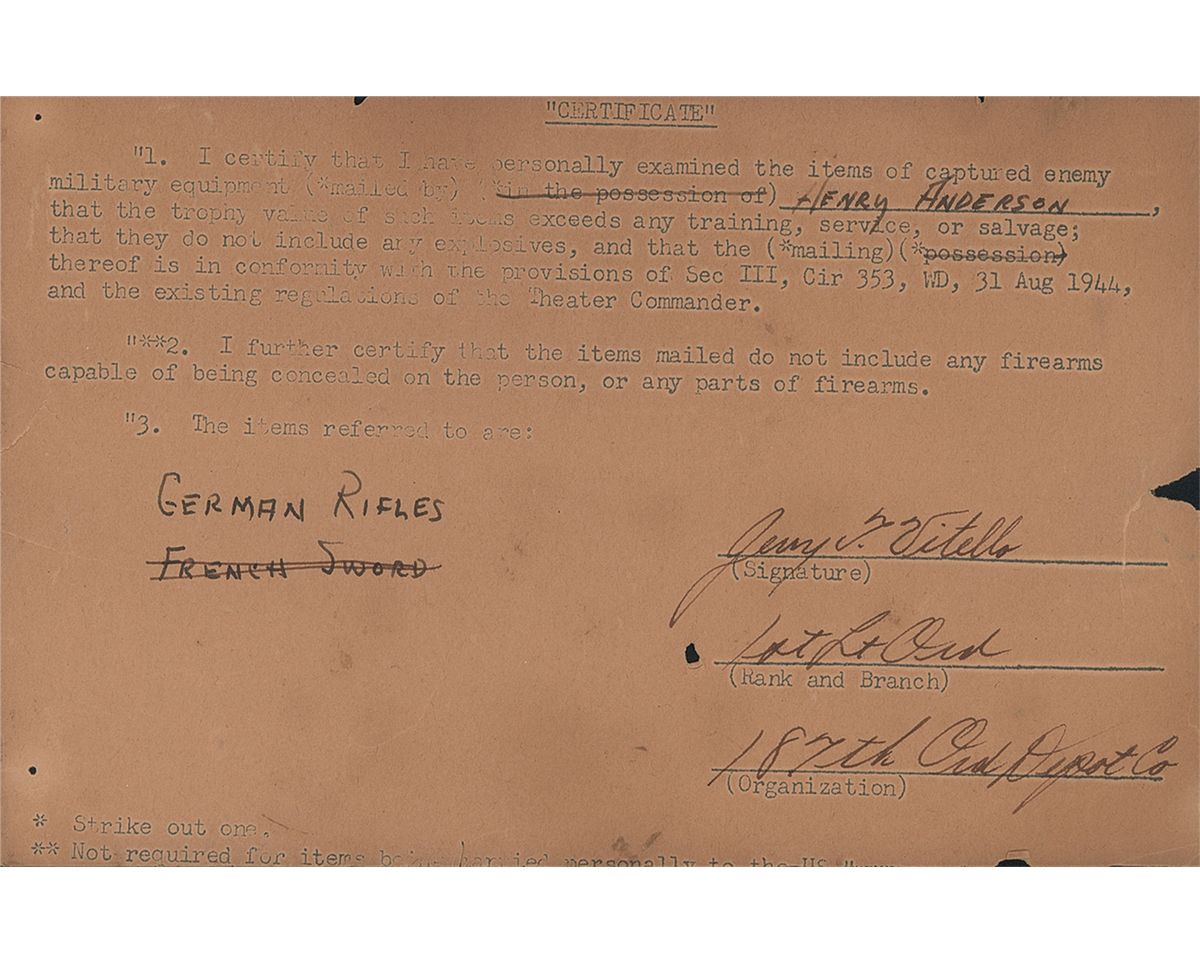 "CERTIFICATE"
"1. I certify that I have personally examined the items of captured enemy
military equipment (*mailed by) (*in the possession of) HENRY ANDERSON,
that the trophy value of such items exceeds any training, service, or salvage;
that they do not include any explosives, and that the (*mailing)(*possession)
thereof is in conformity with the provisions of Sec III, Cir 353, WD, 31 Aug 1944,
and the existing regulations of the Theater Commander.
"**2. I further certify that the items mailed do not include any firearms
capable of being concealed on the person, or any parts of firearms.
"3. The items referred to are:
GERMAN RIFLES
FRENCH SWORD
Jerry T. Vitello
(Signature)
1st Lt Ord
(Rank and Branch)
187th Ord Depot Co
(Organization)
* Strike out one.
** Not required for items being carried personally to the US